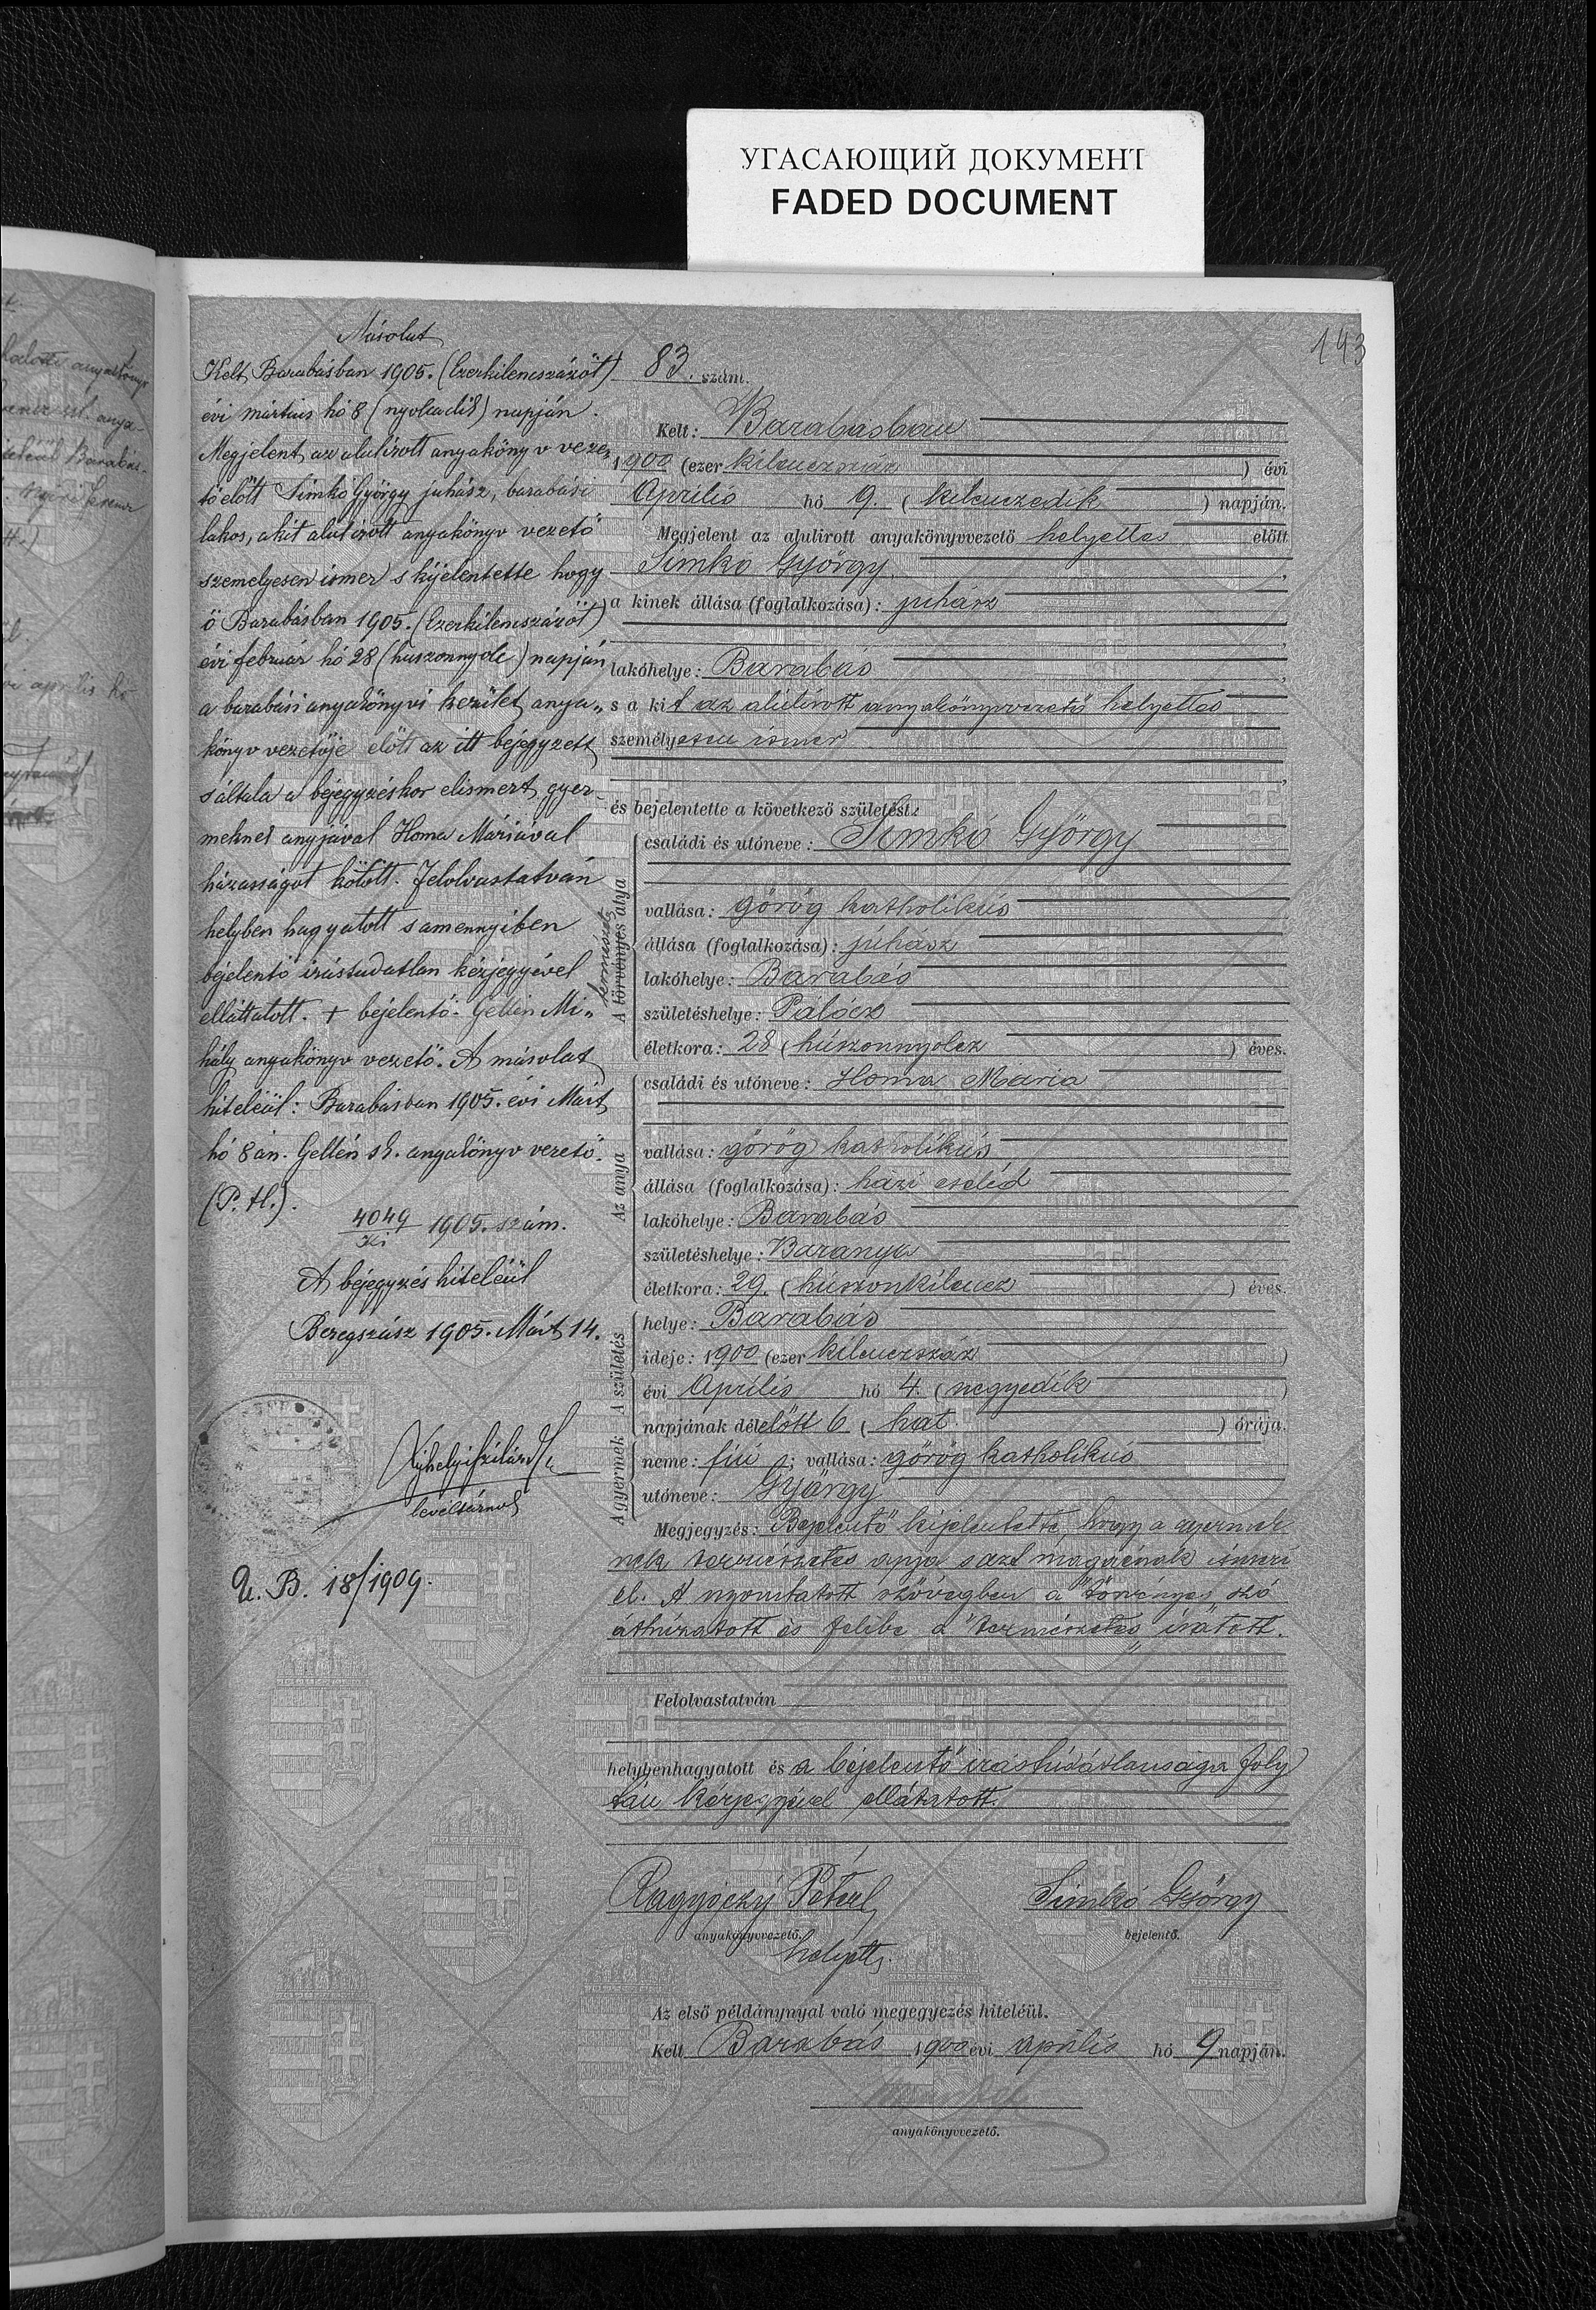 УГАСАЮЩИЙ ДОКУМЕНТ
FADED DOCUMENT
143
Másolat
Kelt Barabásban 1905. (Ezerkilencszázöt)
évi március hó 8 (nyolcadik) napján.
Megjelent az alulirott anyakönyv veze„
tő előtt Simkó György juhász, barabási
lakos, akit alulirott anyakönyv vezető
személyesen ismer s kijelentette hogy
ő Barabásban 1905. (Ezerkilencszázöt)
évi február hó 28 (huszonnyolc) napján
a barabási anyakönyvi kerület anya„
könyv vezetője előtt az itt bejegyzett
s általa a bejegyzéskor elismert gyer
meknek anyjával Homa Máriával
házasságot kötött. Felolvastatván
helyben hagyatott s amennyiben
bejelentő irástudatlan kézjegyével
elláttatott. + bejelentő. Gellén Mi„
hály anyakönyv vezető. A másolat
hiteléül: Barabásban 1905. évi Márt
hó 8 án. Gellén sk. anyakönyv vezető.
(P. H.).
4049
Ki 1905. szám.
A bejegyzés hiteléül
Beregszász 1905. Márt 14.
levéltárnok
U. B. 18/1909.
83. szám.
Kelt: Barabásban
1900 (ezer kilenczszáz ) évi
Április hó 9. ( kilenczedik ) napján.
Megjelent az alulirott anyakönyvvezető helyettes előtt
Simko György,
a kinek állása (foglalkozása): juhász
lakóhelye: Barabás
s a kit az alulírott anyakönyvvezető helyettes
személyesen ismer
és bejelentette a következő születést:
természetes
A törvényes atya
családi és utóneve: Simkó György
vallása: görög katholikus
állása (foglalkozása): juhász
lakóhelye: Barabás
születéshelye: Pálócz
életkora: 28 (húszonnyolcz ) éves.
Az anya
családi és utóneve: Homa Maria
vallása: görög katholikus
állása (foglalkozása): házi cseléd
lakóhelye: Barabás
születéshelye: Baranya
életkora: 29. (húszonkilencz ) éves.
A születés
helye: Barabás
ideje: 1900 (ezer kilenczszáz )
évi Április hó 4. (negyedik )
napjának délelőtt 6 ( hat ) órája.
A gyermek
neme: fiú ; vallása: görög katholikus
utóneve: György
Megjegyzés: Bejelentő kijelentette, hogy a gyermek
nek természetes apja s azt magáénak ismeri
el. A nyomtatott szövegben a "törvényes„ szó
áthúzatott és felibe a "természetes„ íratott.
Felolvastatván
helybenhagyatott és a bejelentő irástudatlansága foly
tán kézjegyével ellátatott.
Simkó György
anyakönyvvezető. bejelentő.
helyetts.
Az első példánynyal való megegyezés hiteléül.
Kelt Barabás 1900 évi április hó 9 napján.
anyakönyvvezető.